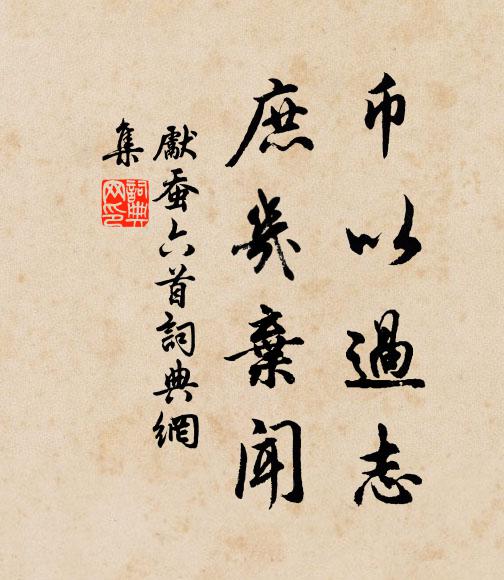 币以過志
庶幾棄聞
獻蚕六首詞典網
集
詞典
网印